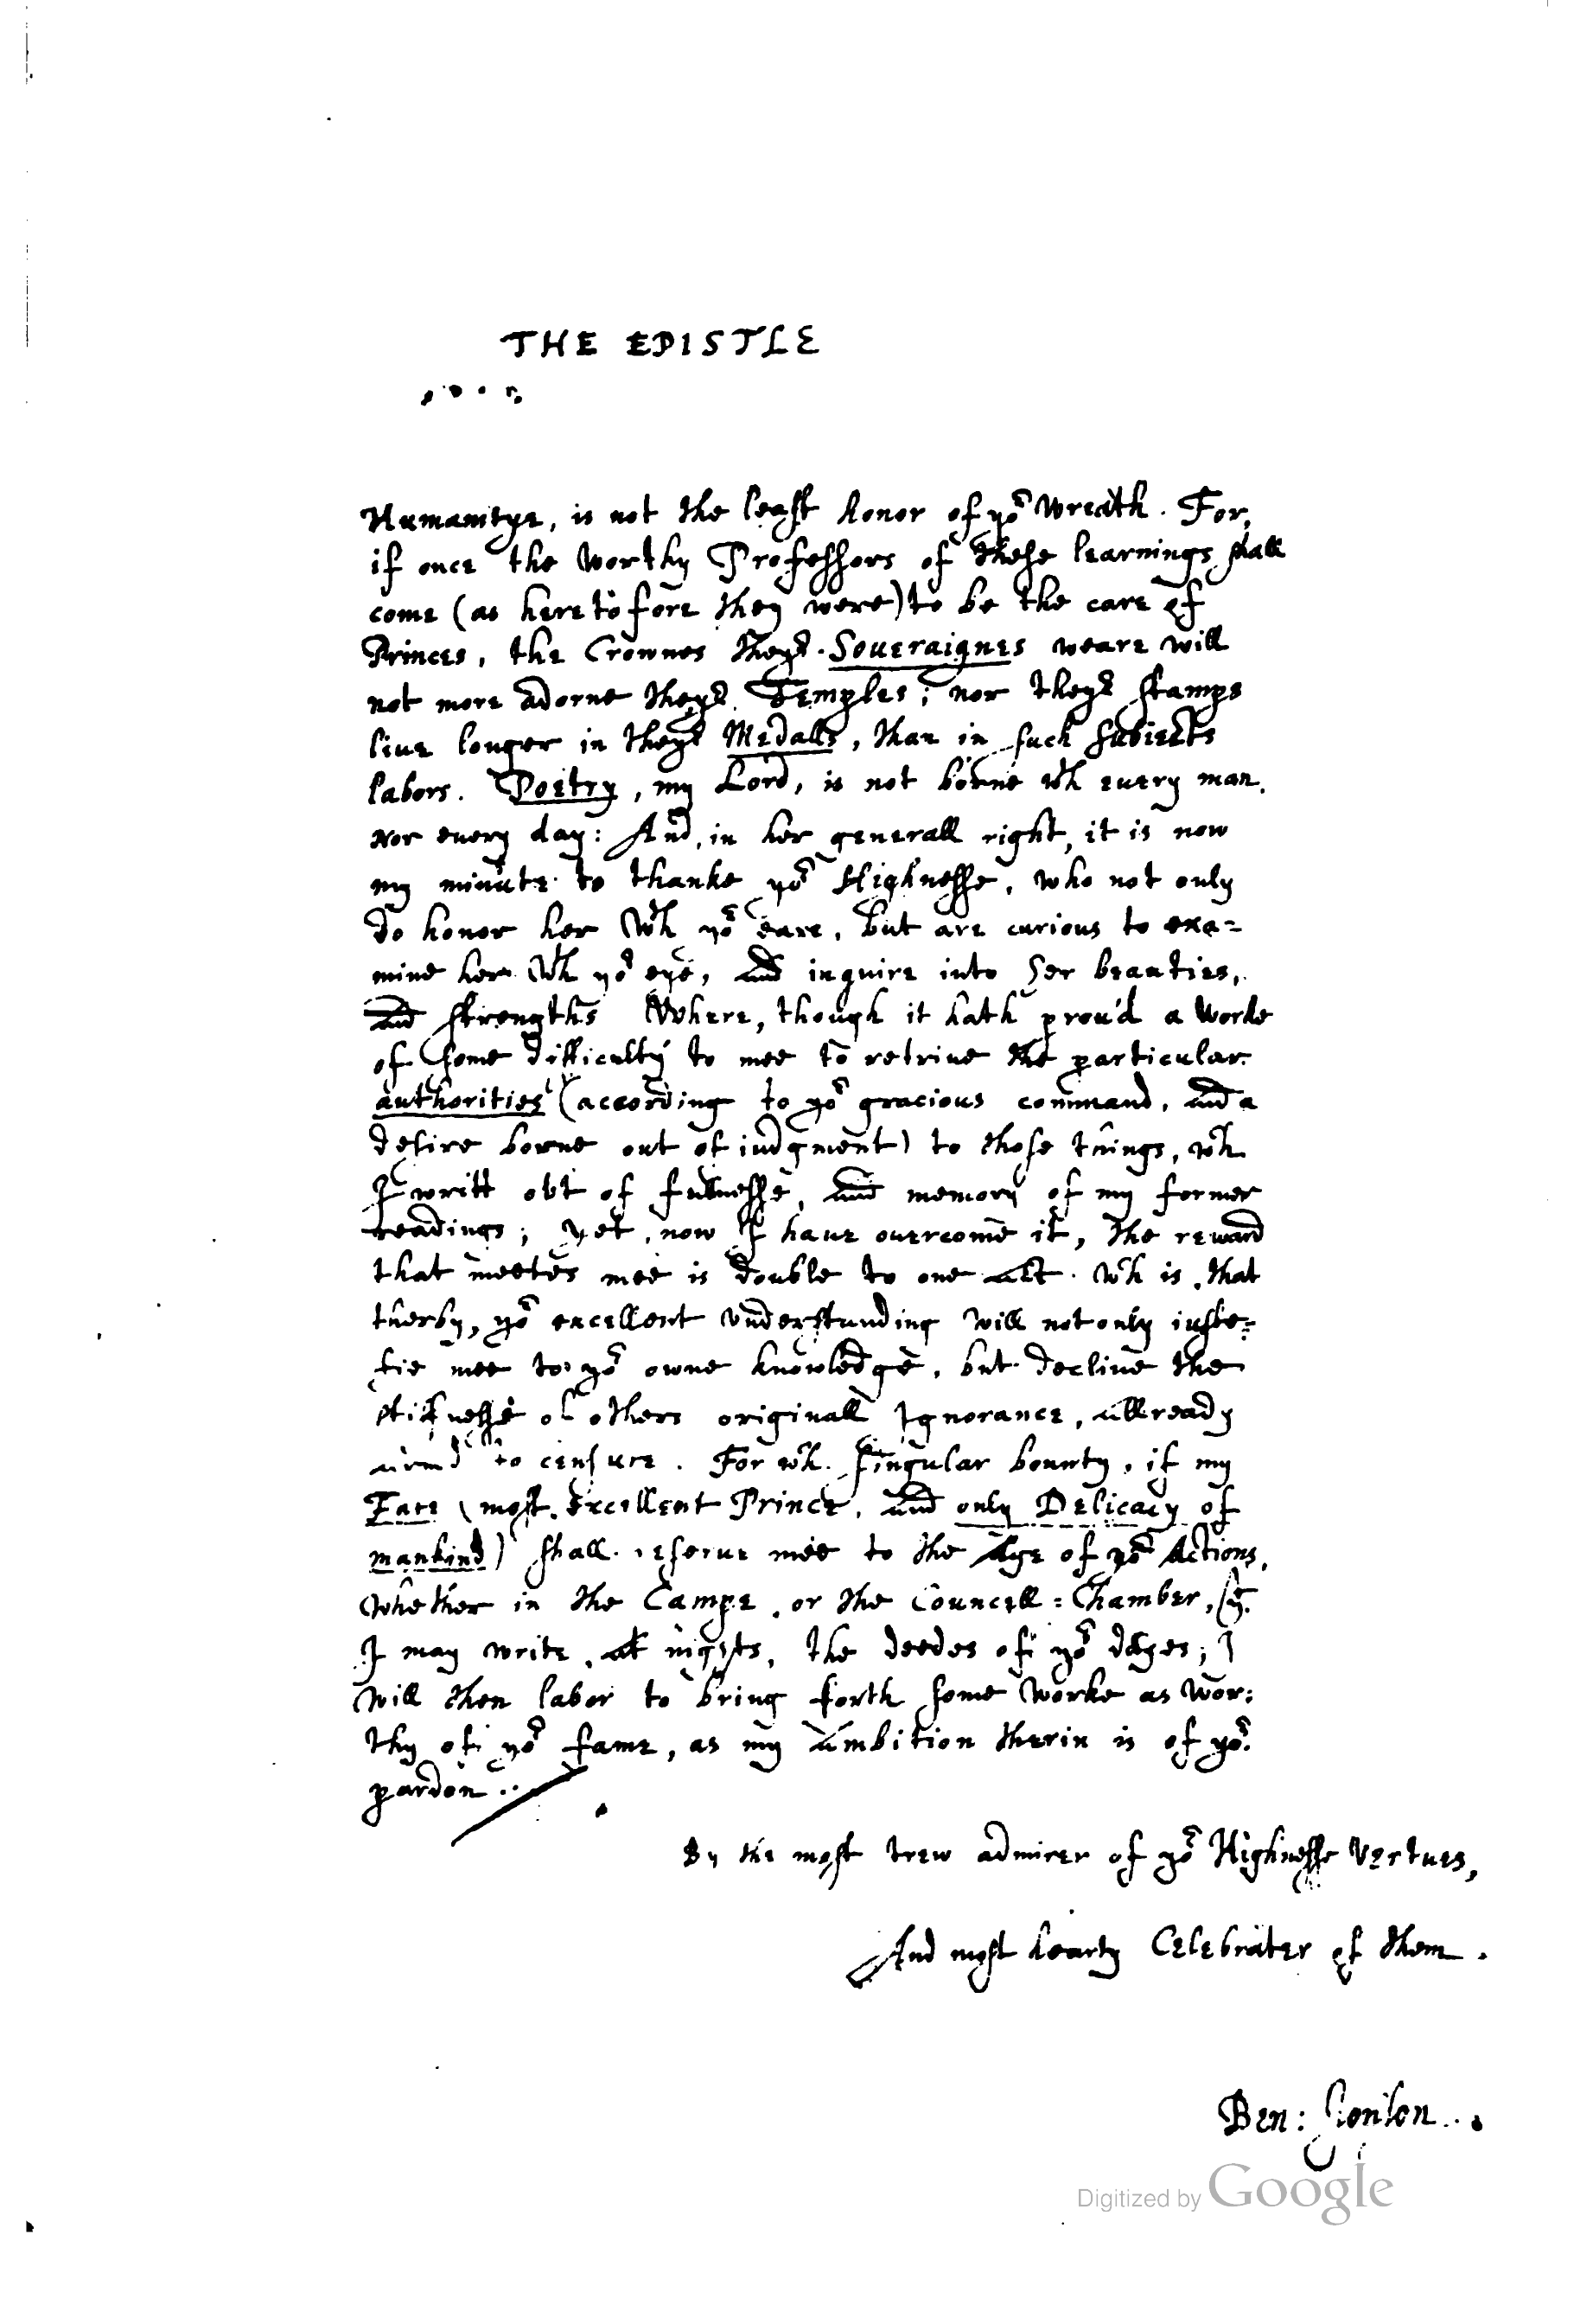 THE EPISTLE
Humanitye, is not the least honor of yoʳ Wreath. For,
if once the Worthy Professors of these learnings shall
come (as heretofore they were) to be the care of
Princes, the Crownes theyʳ Soueraignes weare will
not more adorne theyʳ Temples; nor theyʳ stamps
liue longer in theyʳ Medalls, than in such subiects
labors. Poëtry, my Lord, is not borne wᵗʰ euery man,
Nor euery day: And, in her generall right, it is now
my minute to thanke yoʳ Highnesse, who not only
do honor her Wᵗʰ yoʳ eare, but are curious to exa=
mine her Wᵗʰ yoʳ eye, and inquire into her beauties,
and strengths Where, though it hath prou'd a Worke
of some difficulty to mee to retriue the particular
authorities (according to yoʳ gracious command, and a
desire borne out of iudgment) to those things, wᶜʰ
I writt out of fullnesse, and memory of my former
readings; yet, now I haue ouercome it, the reward
that meetes mee is double to one act: Wᶜʰ is, that
therby, yoʳ excellent Vnderstanding will not only iuste=
fie mee to yoʳ owne knowledge, but decline the
stifnesse of others originall Ignorance, allready
arm'd to censure. For wᶜʰ singular bounty, if my
Fate (most excellent Prince, and only Delicacy of
mankind) shall reserue mee to the Age of yoʳ Actions,
Whether in the Campe, or the Councell=Chamber, yᵗ
I may write, at nights, the deedes of yoʳ dayes; I
Will then labor to bring forth some Worke as Wor:
thy of yoʳ fame, as my ambition therin is of yoʳ
pardon..
By the most trew admirer of yoʳ Highnesse Vertues,
And most hearty Celebrater of them.
Ben: Ionson..
Digitized by Google